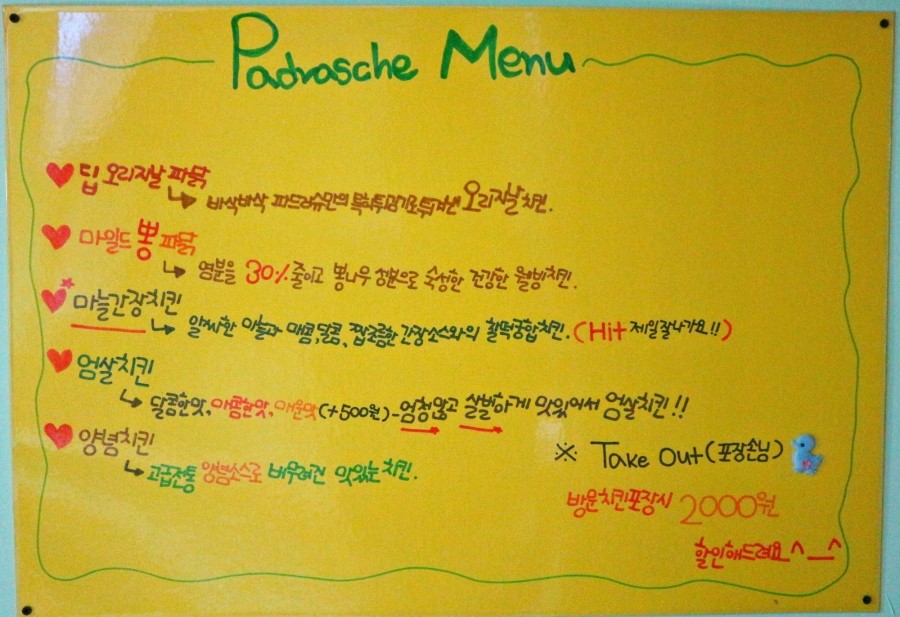 Padrasche Menu
딥 오리지날 파닭
바삭바삭 파드라슈만의 특허튀김기로 튀겨낸 오리지날 치킨.
마일드 뽕 파닭
염분을 30% 줄이고 뽕나무 성분으로 숙성한 건강한 웰빙치킨.
마늘간장치킨
알싸한 마늘과 매콤,달콤, 짭조름한 간장소스와의 찰떡궁합치킨. (Hit 제일잘나가요!!)
엄살치킨
달콤한맛, 매콤한맛, 매운맛 (+500원)-엄청많고 살벌하게 맛있어서 엄살치킨!!
양념치킨
고급전통 양념소스로 버무려진 맛있는 치킨.
※ Take Out (포장손님)
방문치킨포장시 2000원
할인해드려요^__^